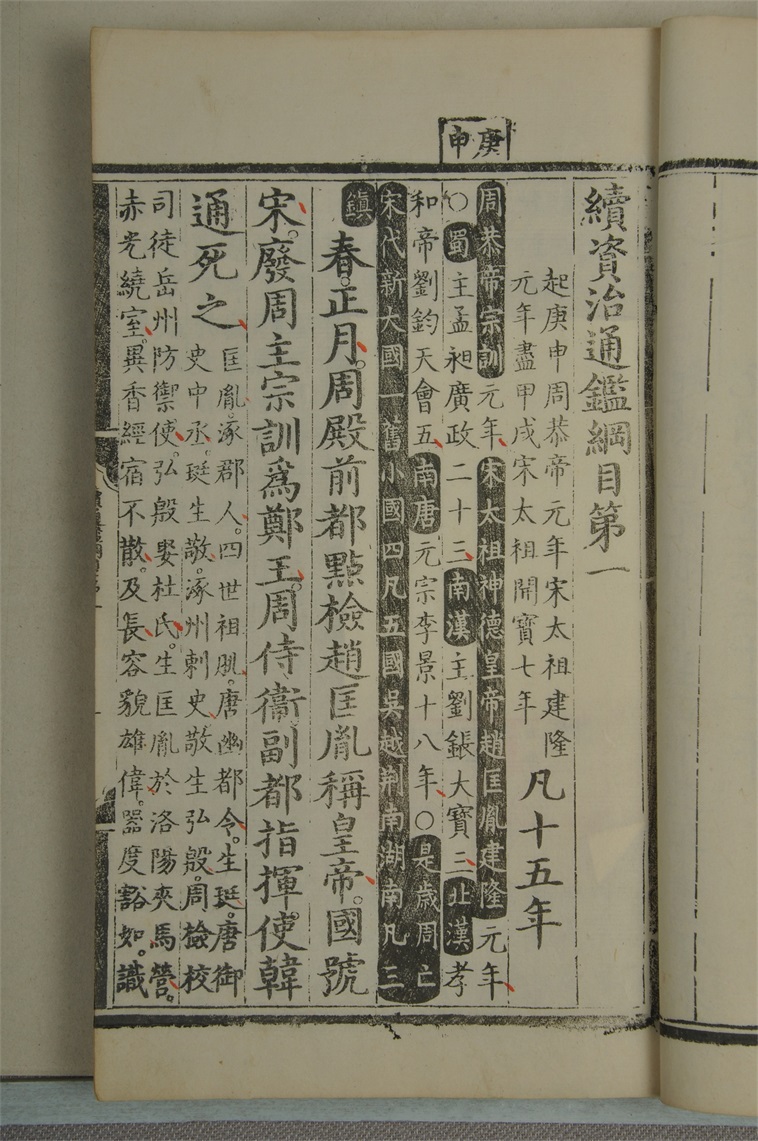 庚申
續資治通鑑綱目第一
起庚申周恭帝元年宋太祖建隆
元年盡甲戌宋太祖開寶七年
凡十五年
周恭帝宗訓元年宋太祖神德皇帝趙匡胤建隆元年
○蜀主孟昶廣政二十三南漢主劉鋹大寶三北漢孝
和帝劉鈞天會五南唐元宗李景十八年○是歲周亡
宋代新大國一舊小國四凡五國吳越荆南湖南凡三
鎮
春正月周殿前都點檢趙匡胤稱皇帝國號
宋廢周主宗訓爲鄭王周侍衞副都指揮使韓
通死之
匡胤涿郡人四世祖朓唐幽都令生珽唐御
史中丞珽生敬涿州刺史敬生弘殷周檢校
司徒岳州防禦使弘殷娶杜氏生匡胤於洛陽夾馬營
赤光繞室異香經宿不散及長容貌雄偉器度豁如識